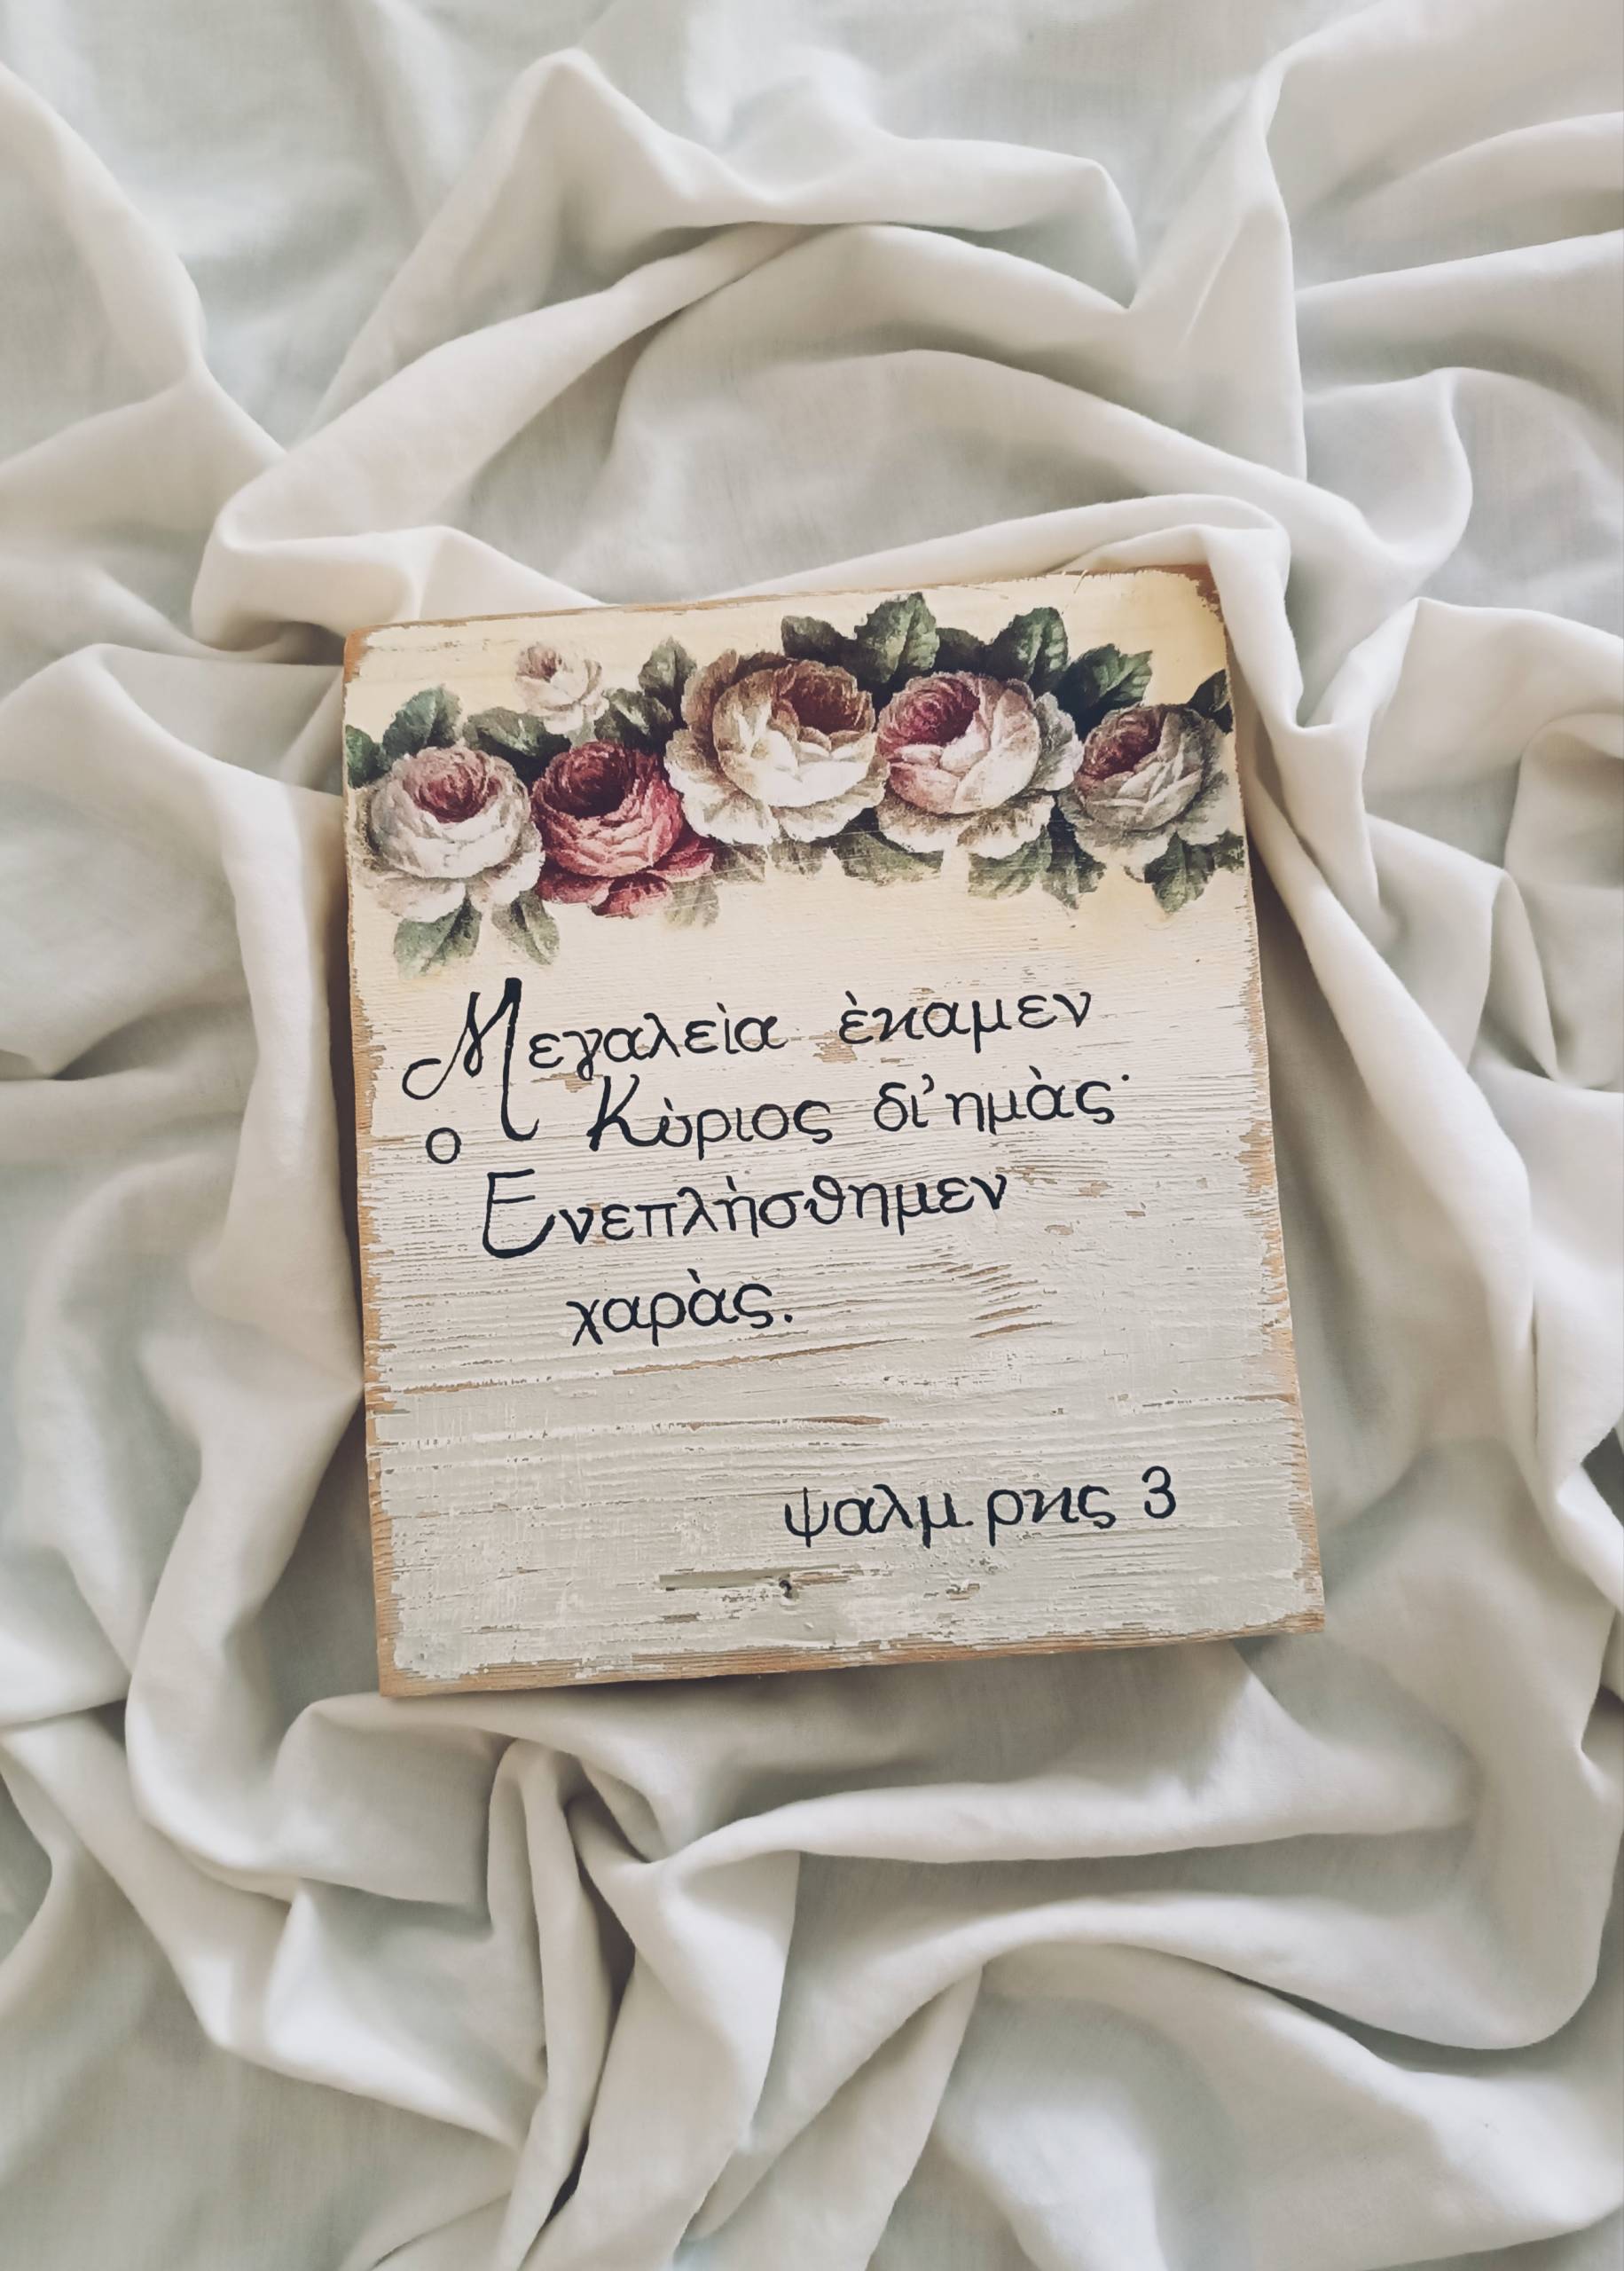 Μεγαλεὶα ὲκαμεν
ο Κὺριος δι’ημὰς·
Ενεπλὴσθημεν
χαρὰς.
ψαλμ. ρκς 3